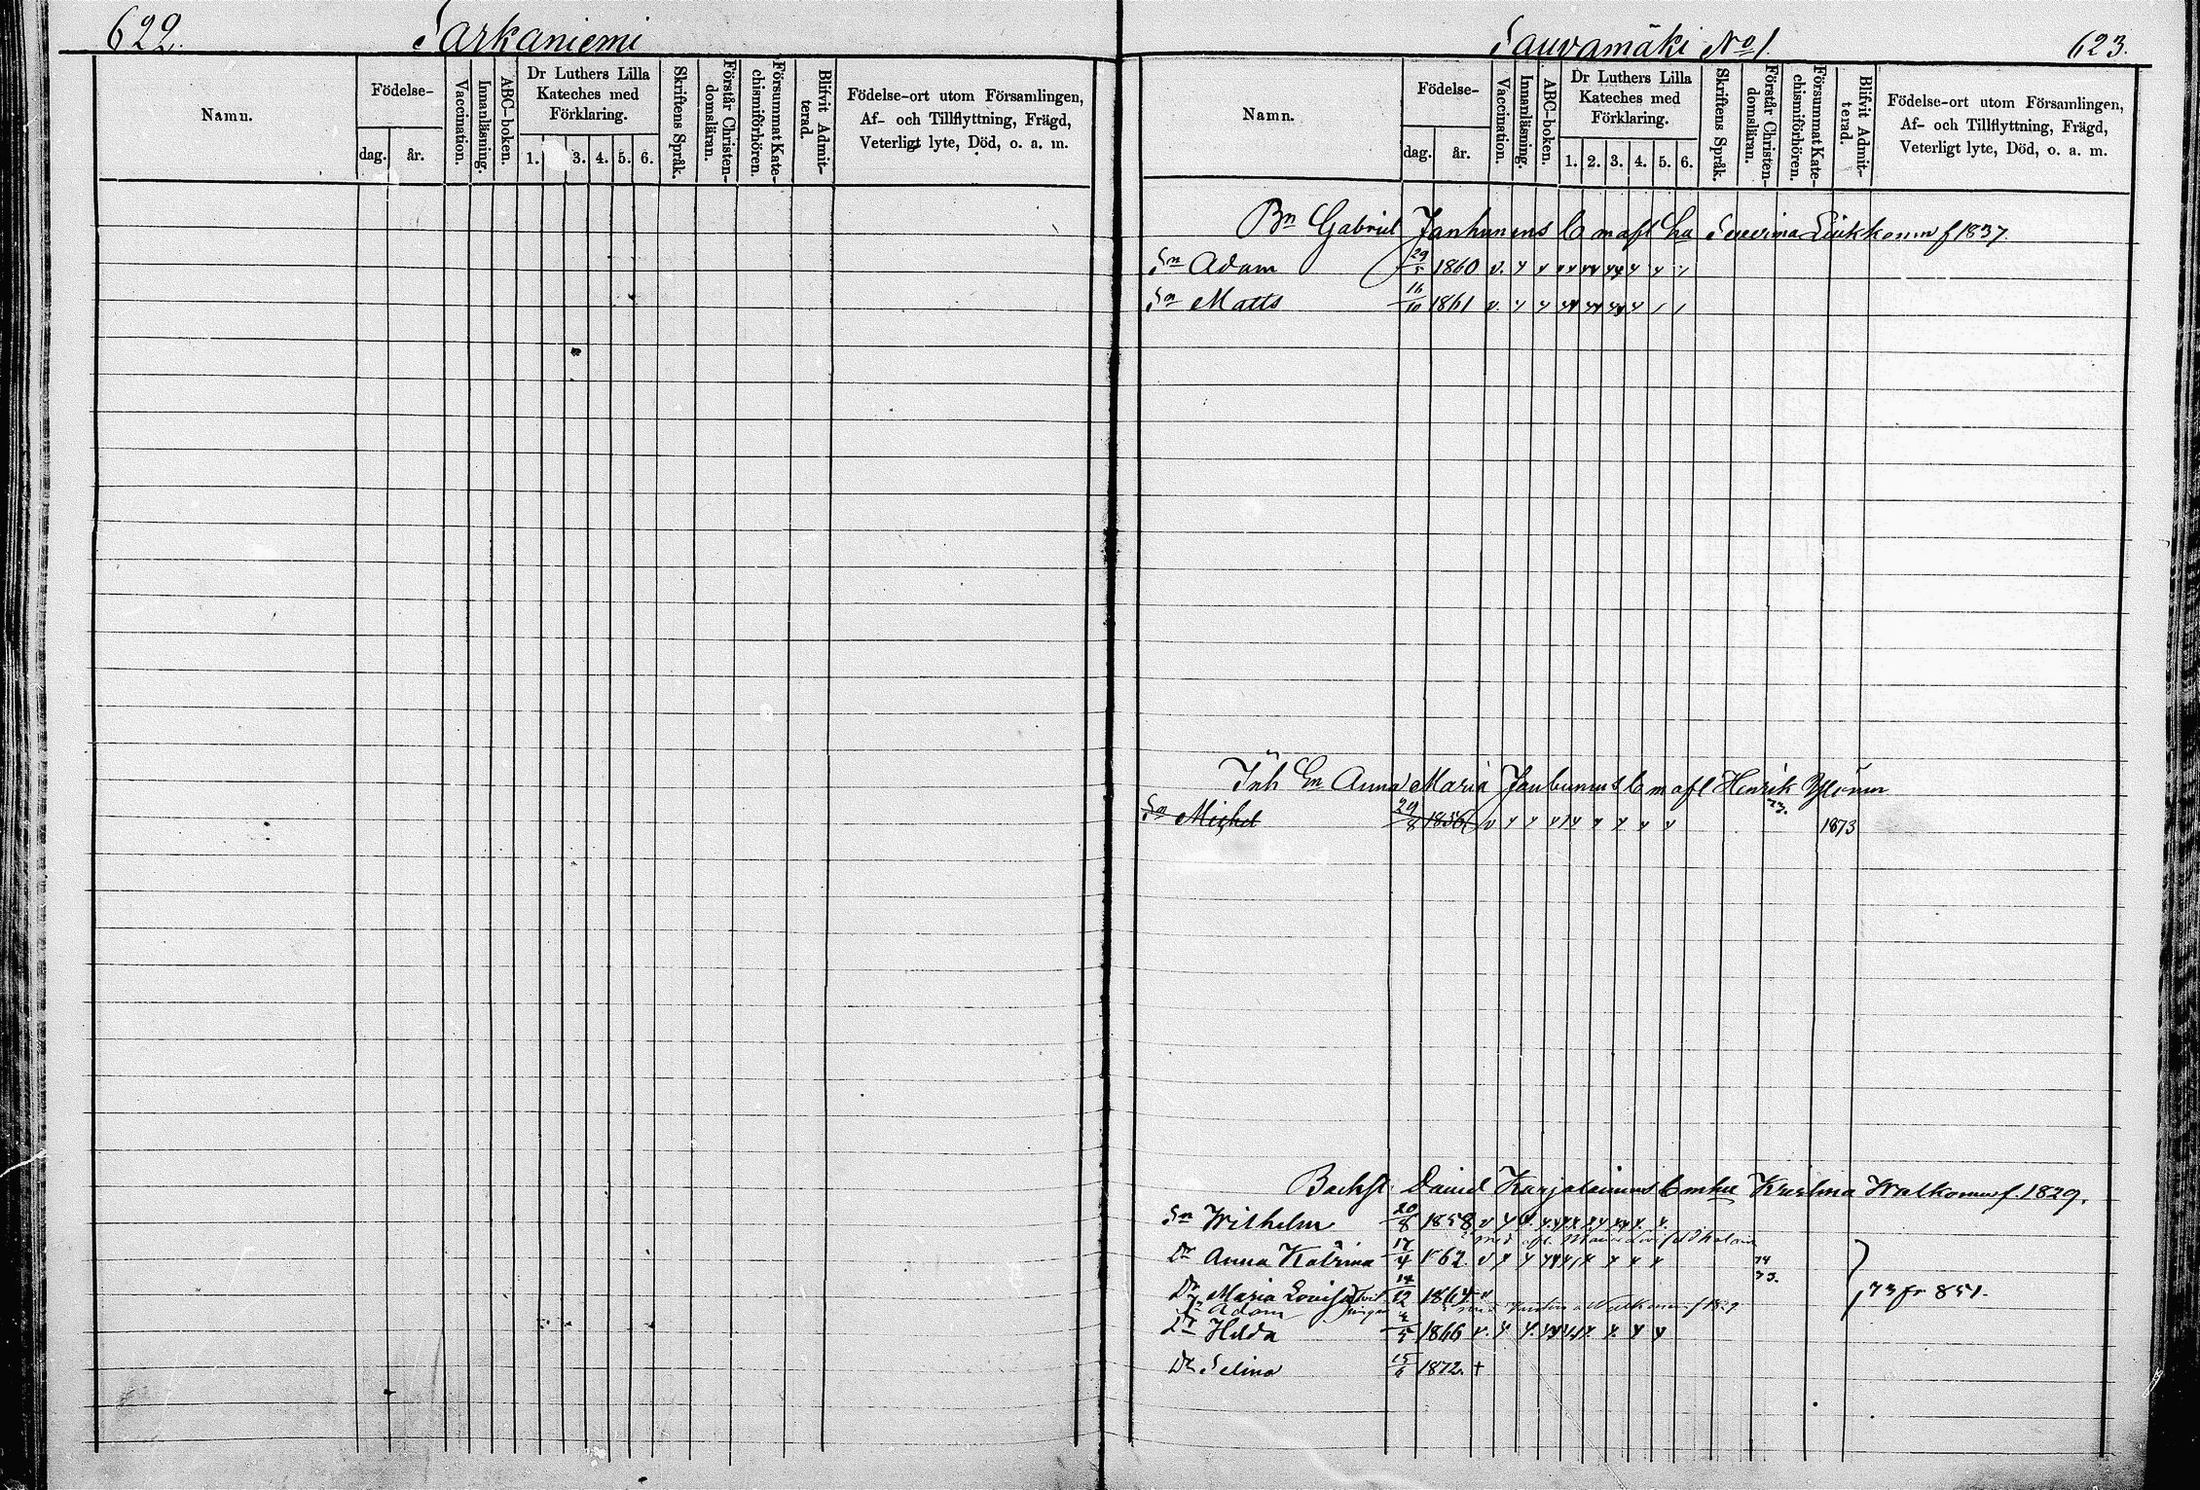 622. Sarkaniemi
Namn.
Födelse-
dag. år.
Vaccination.
Innanläsning.
ABC-boken.
Dr Luthers Lilla
Kateches med
Förklaring.
1. 3. 4. 5. 6.
Skriftens Språk.
Förstår Christen-
domsläran.
Försummat Kate-
chismiförhören.
Blifvit Admit-
terad.
Födelse-ort utom Församlingen,
Af- och Tillflyttning, Frägd,
Veterligt lyte, Död, o. a. m.
Sauvamäki No 1. 623.
Namn.
Födelse-
dag. år.
Vaccination.
Innanläsning.
ABC-boken.
Dr Luthers Lilla
Kateches med
Förklaring.
1. 2. 3. 4. 5. 6.
Skriftens Språk.
Förstår Christen-
domsläran.
Försummat Kate-
chismiförhören.
Blifvit Admit-
terad.
Födelse-ort utom Församlingen,
Af- och Tillflyttning, Frägd,
Veterligt lyte, Död, o. a. m.
Bn Gabriel Janhunens b m afl hu Severina Liukkonen f 1837.
Sn Adam 29/5 1860 v.
Sn Matts 16/10 1861 v.
Inh En Anna Maria Janhunens b m afl Henrik
Sn Michel 29/8 1856 v 73. 1873
Backst. David Karjalainens b m hu Kristina Walkonen f. 1829.
Sn Wilhelm 20/8 1858 v
Dr Anna Katrina 17/4 1862. v 74
73.
Dr Maria Lovisa 14/12 1864 v 73 fr 851.
Sn Adam
Dr Hilda 4/5 1866 v.
Dr Selina 15/6 1872. +